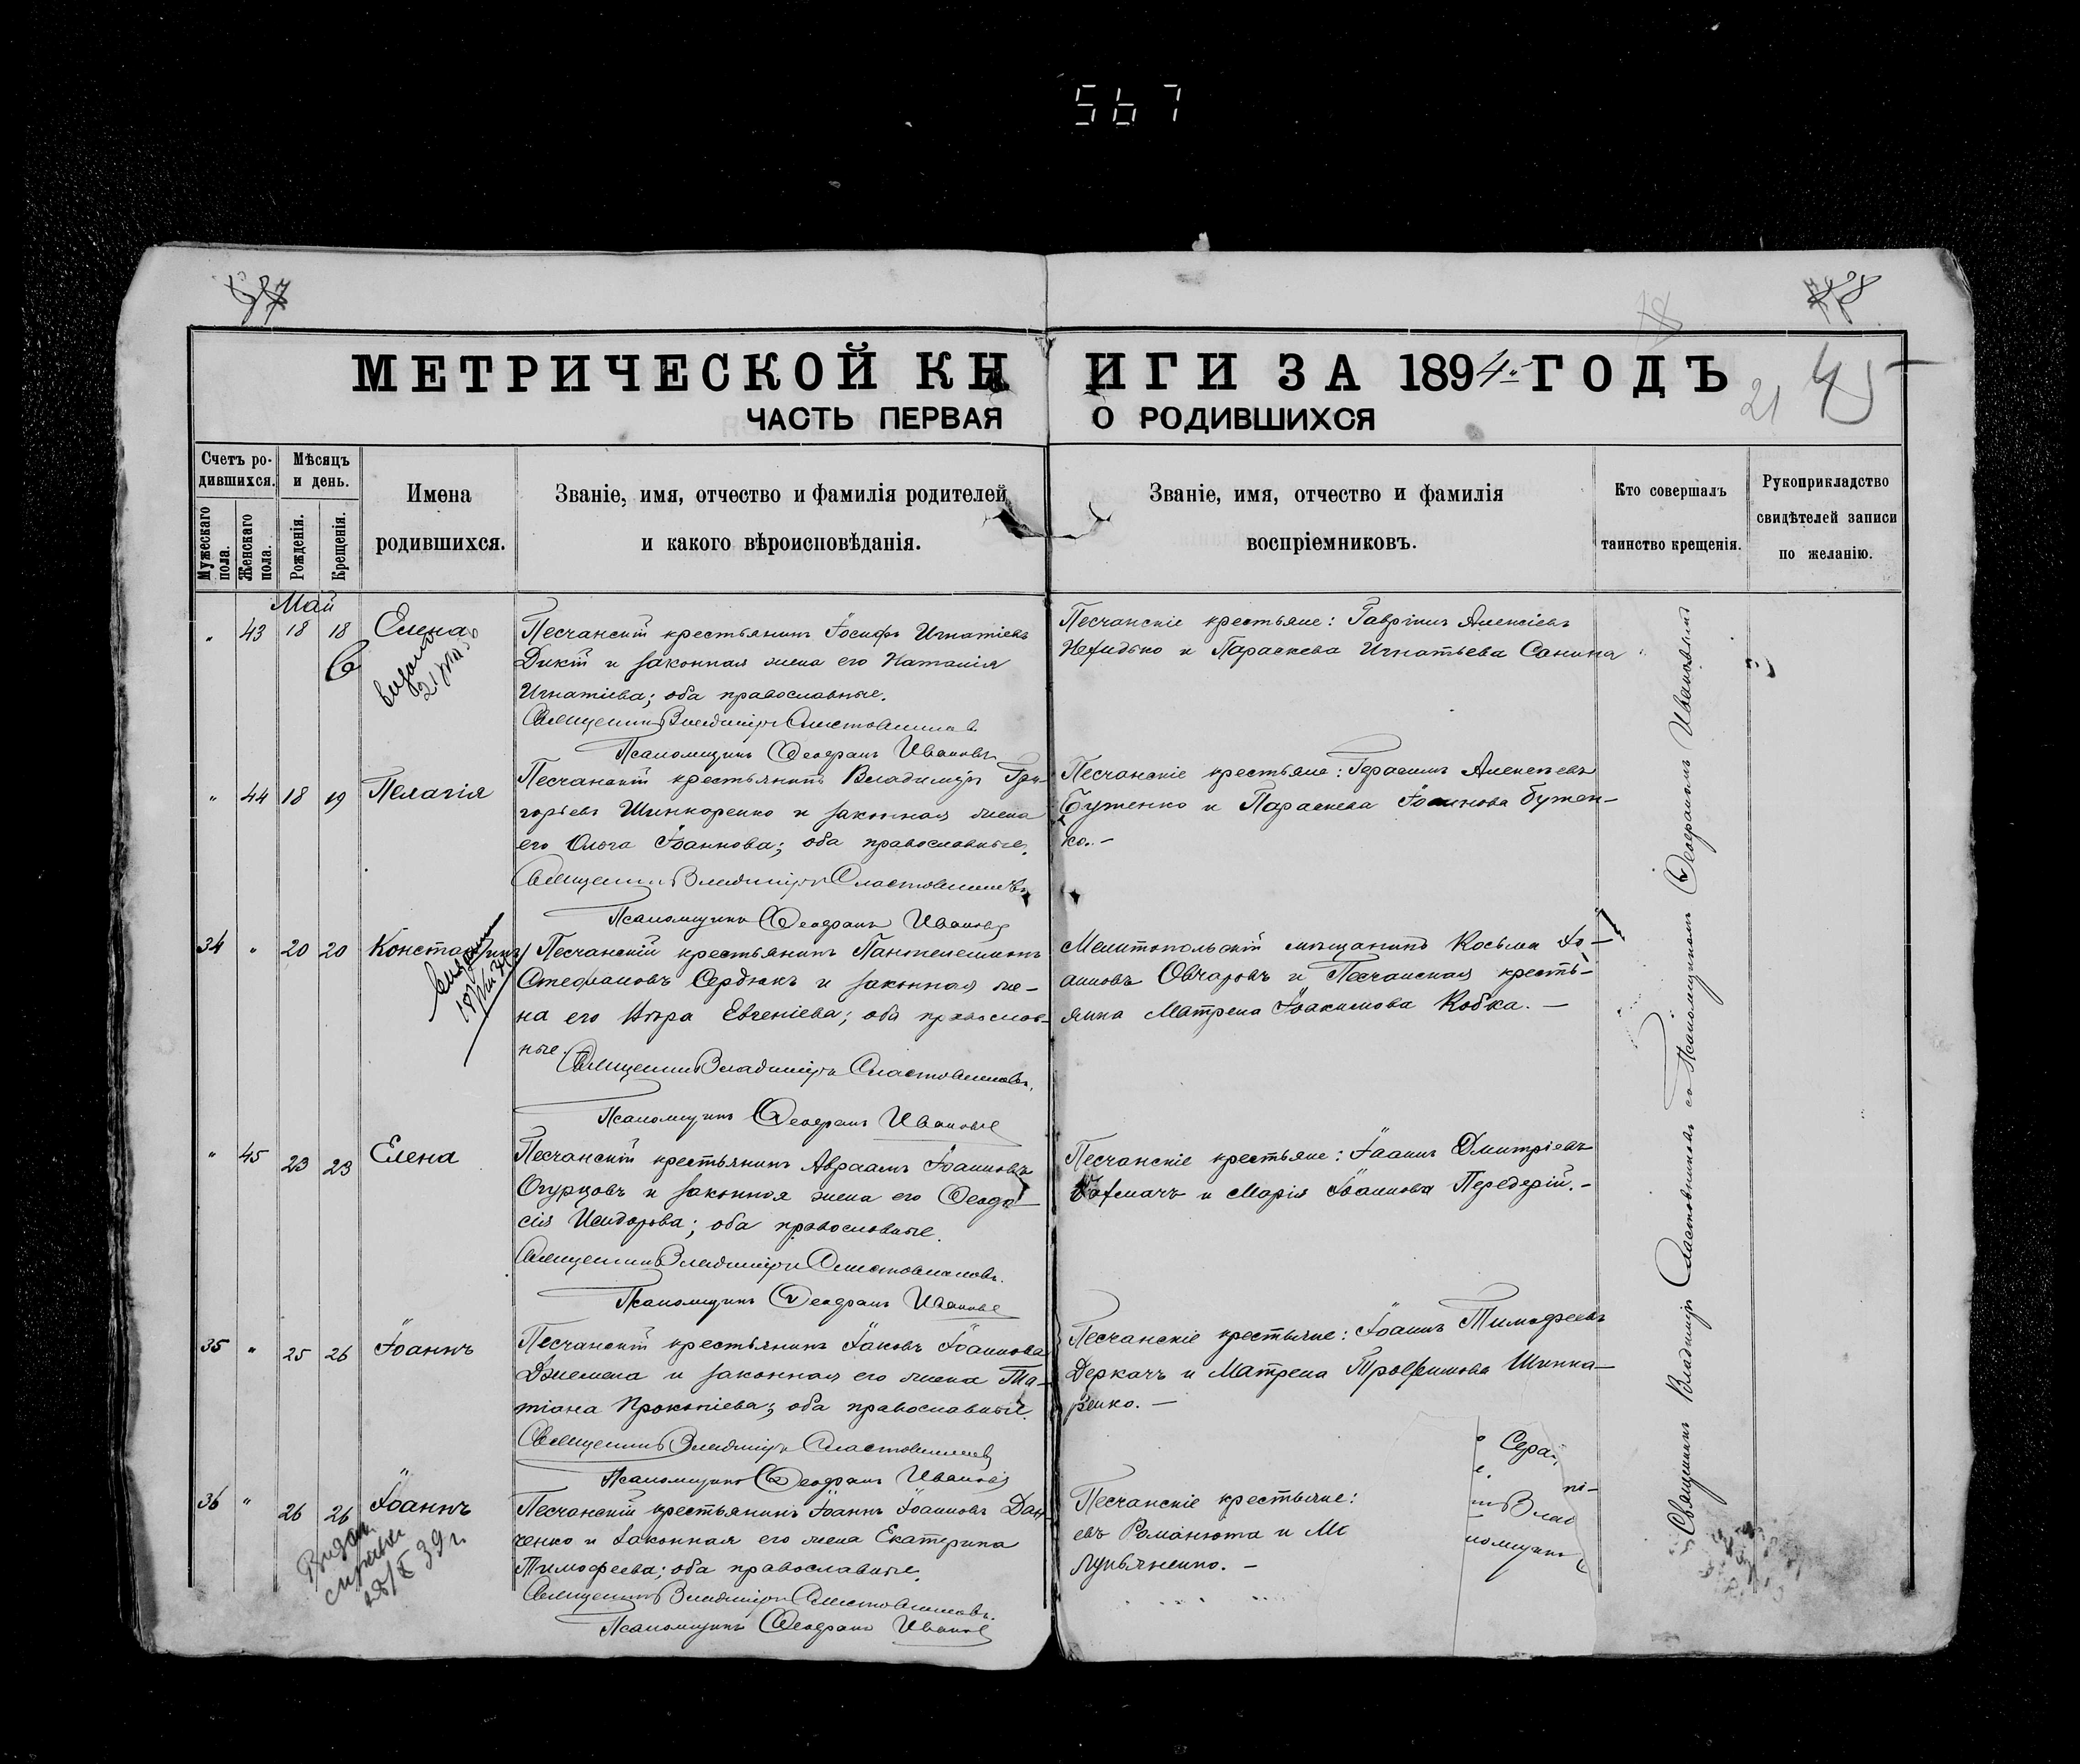 567
МЕТРИЧЕСКОЙ КНИГИ ЗА 1894 ГОДЪ
21 45
ЧАСТЬ ПЕРВАЯ О РОДИВШИХСЯ
Счетъ ро-
дившихся.
Мужескаго пола.
Женскаго пола.
Мѣсяцъ
и день.
Рожденія.
Крещенія.
Имена
родившихся.
Званіе, имя, отчество и фамилія родителей
и какого вѣроисповѣданія.
Званіе, имя, отчество и фамилія
воспріемниковъ.
Кто совершалъ
таинство крещенія.
Рукоприкладство
свидѣтелей записи
по желанію.
Май
" 43 18 18 Елена
Песчанскій крестьянинъ Іосифъ Игнатіевъ
и законная жена его Наталія
Игнатіева; оба православные.
Священникъ Владиміръ Сластовниковъ
Псаломщикъ Ѳеофанъ Ивановъ
Песчанскіе крестьяне: Гавріилъ Алексіевъ
и Параскева Игнатьева Санина
" 44 18 19 Пелагія
Песчанскій крестьянинъ Владиміръ Гри-
горьевъ Шинкоренко и законная жена
его Ольга Іоаннова; оба православные.
Священникъ Владиміръ Сластовниковъ
Псаломщикъ Ѳеофанъ Ивановъ
Песчанскіе крестьяне: Герасимъ Алексѣевъ
Бутенко и Параскева Іоаннова Бутен-
ко. -
34 " 20 20 Константинъ
Песчанскій крестьянинъ Пантелеимонъ
Стефановъ Сердюкъ и законная же-
на его Вѣра Евгеніева; оба православ-
ные.
Священникъ Владиміръ Сластовниковъ
Псаломщикъ Ѳеофанъ Ивановъ
Мелитопольскій мѣщанинъ Косьма Іо-
анновъ Овчаровъ и Песчанская кресть-
янка Матрена Іоакимова Кобка. -
" 45 23 23 Елена
Песчанскій крестьянинъ Авраамъ Іоанновъ
Огурцовъ и законная жена его Ѳеодо-
сія Исидорова; оба православные.
Священникъ Владиміръ Сластовниковъ
Псаломщикъ Ѳеофанъ Ивановъ
Песчанскіе крестьяне: Іоаннъ Дмитріевъ
и Марія Іоаннова Передерій. -
35 " 25 26 Іоаннъ
Песчанскій крестьянинъ Іаковъ Іоанновъ
и законная его жена Та-
тіана Прокопіева; оба православные.
Священникъ Владиміръ Сластовниковъ
Псаломщикъ Ѳеофанъ Ивановъ
Песчанскіе крестьяне: Іоаннъ Тимофеевъ
Деркачъ и Матрена Трофимова Шинка-
ренко. -
36 " 26 26 Іоаннъ
Видан
справки
28/X 39 г.
Песчанскій крестьянинъ Іоаннъ Іоанновъ Дан-
ченко и законная его жена Екатерина
Тимофеева; оба православные.
Священникъ Владиміръ Сластовниковъ
Псаломщикъ Ѳеофанъ Ивановъ
Песчанскіе крестьяне:
евъ Романюта и М
Лукьяненко. -
Священникъ Владиміръ Сластовниковъ со Псаломщикомъ Ѳеофаномъ Ивановымъ